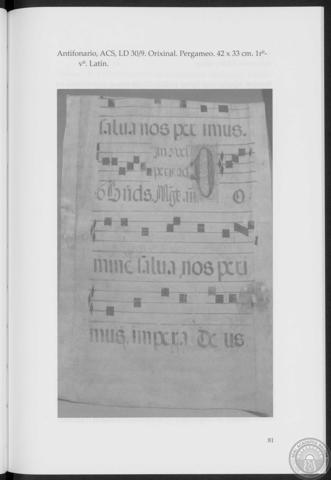 Antifonario, ACS, LD 30/9. Orixinal. Pergameo. 42 x 33 cm. 1rº-
vº. Latín.
salua nos peri imus.
O
mine salua nos peri
mus, impera de us
81